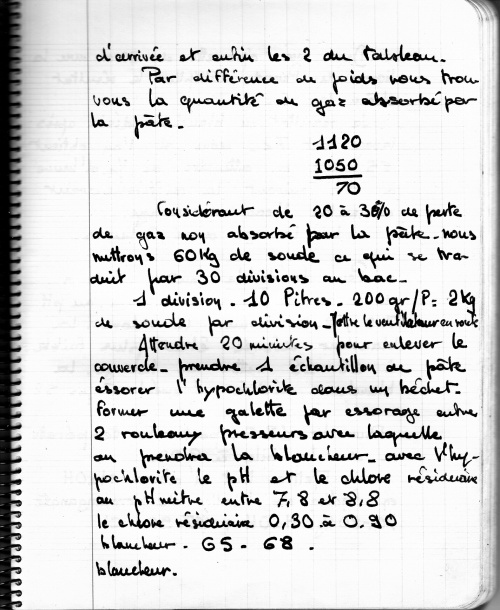 d'arrivée et enfin les 2 du tableau.
Par différence de poids nous trou-
vons la quantité de gaz absorbé par
la pâte.
1120
1050
70
Considérant de 20 à 30% de perte
de gaz non absorbé par la pâte. nous
mettrons 60Kg de soude ce qui se tra-
duit par 30 divisions au bac.
1 division. 10 litres. 200gr/l = 2Kg
de soude par division. Mettre le ventilateur en route
Attendre 20 minutes pour enlever le
couvercle. prendre 1 échantillon de pâte
éssorer l'hypochlorite dans un béchet.
former une galette par essorage entre
2 rouleaux presseurs avec laquelle
on prendra la blancheur. avec l'hy-
pochlorite le pH et le chlore résiduaire
au pHmètre entre 7,8 et 8,8
le chlore résiduaire 0,30 à 0.90
blancheur. 65. 68.
blancheur.